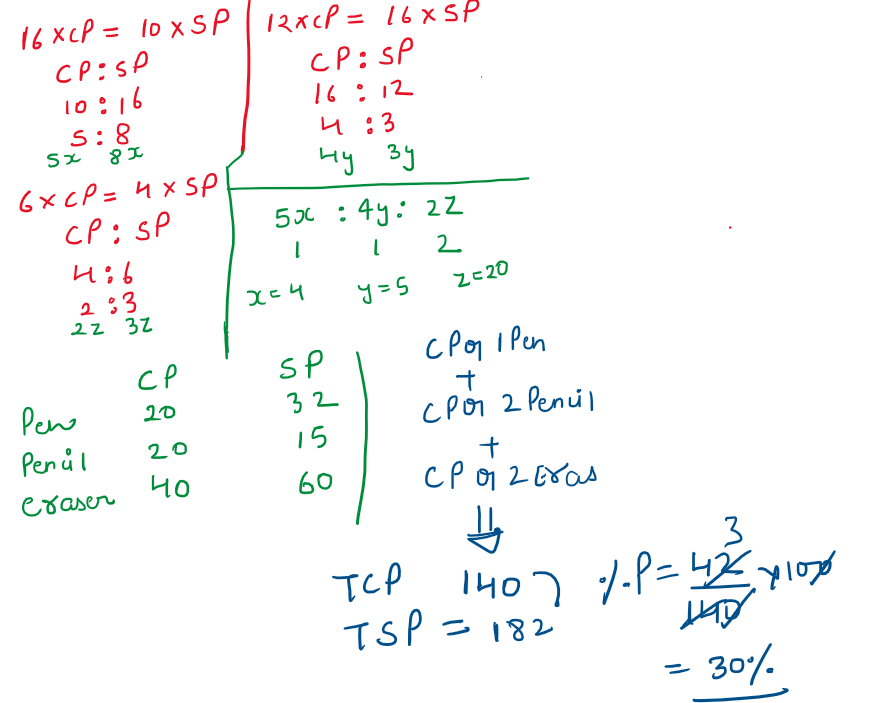 16 × CP = 10 × SP
CP : SP
10 : 16
5 : 8
5x 8x
12 × CP = 16 × SP
CP : SP
16 : 12
4 : 3
4y 3y
6 × CP = 4 × SP
CP : SP
4 : 6
2 : 3
2z 3z
5x : 4y : 2z
1 1 2
x = 4 y = 5 z = 20
CP SP
Pen 20 32
Pencil 20 15
eraser 40 60
CP of 1 Pen
+
CP of 2 Pencil
+
CP of 2 Eras
⇓
TCP 140
TSP = 182
%.P = 42/140 × 100
3
= 30%